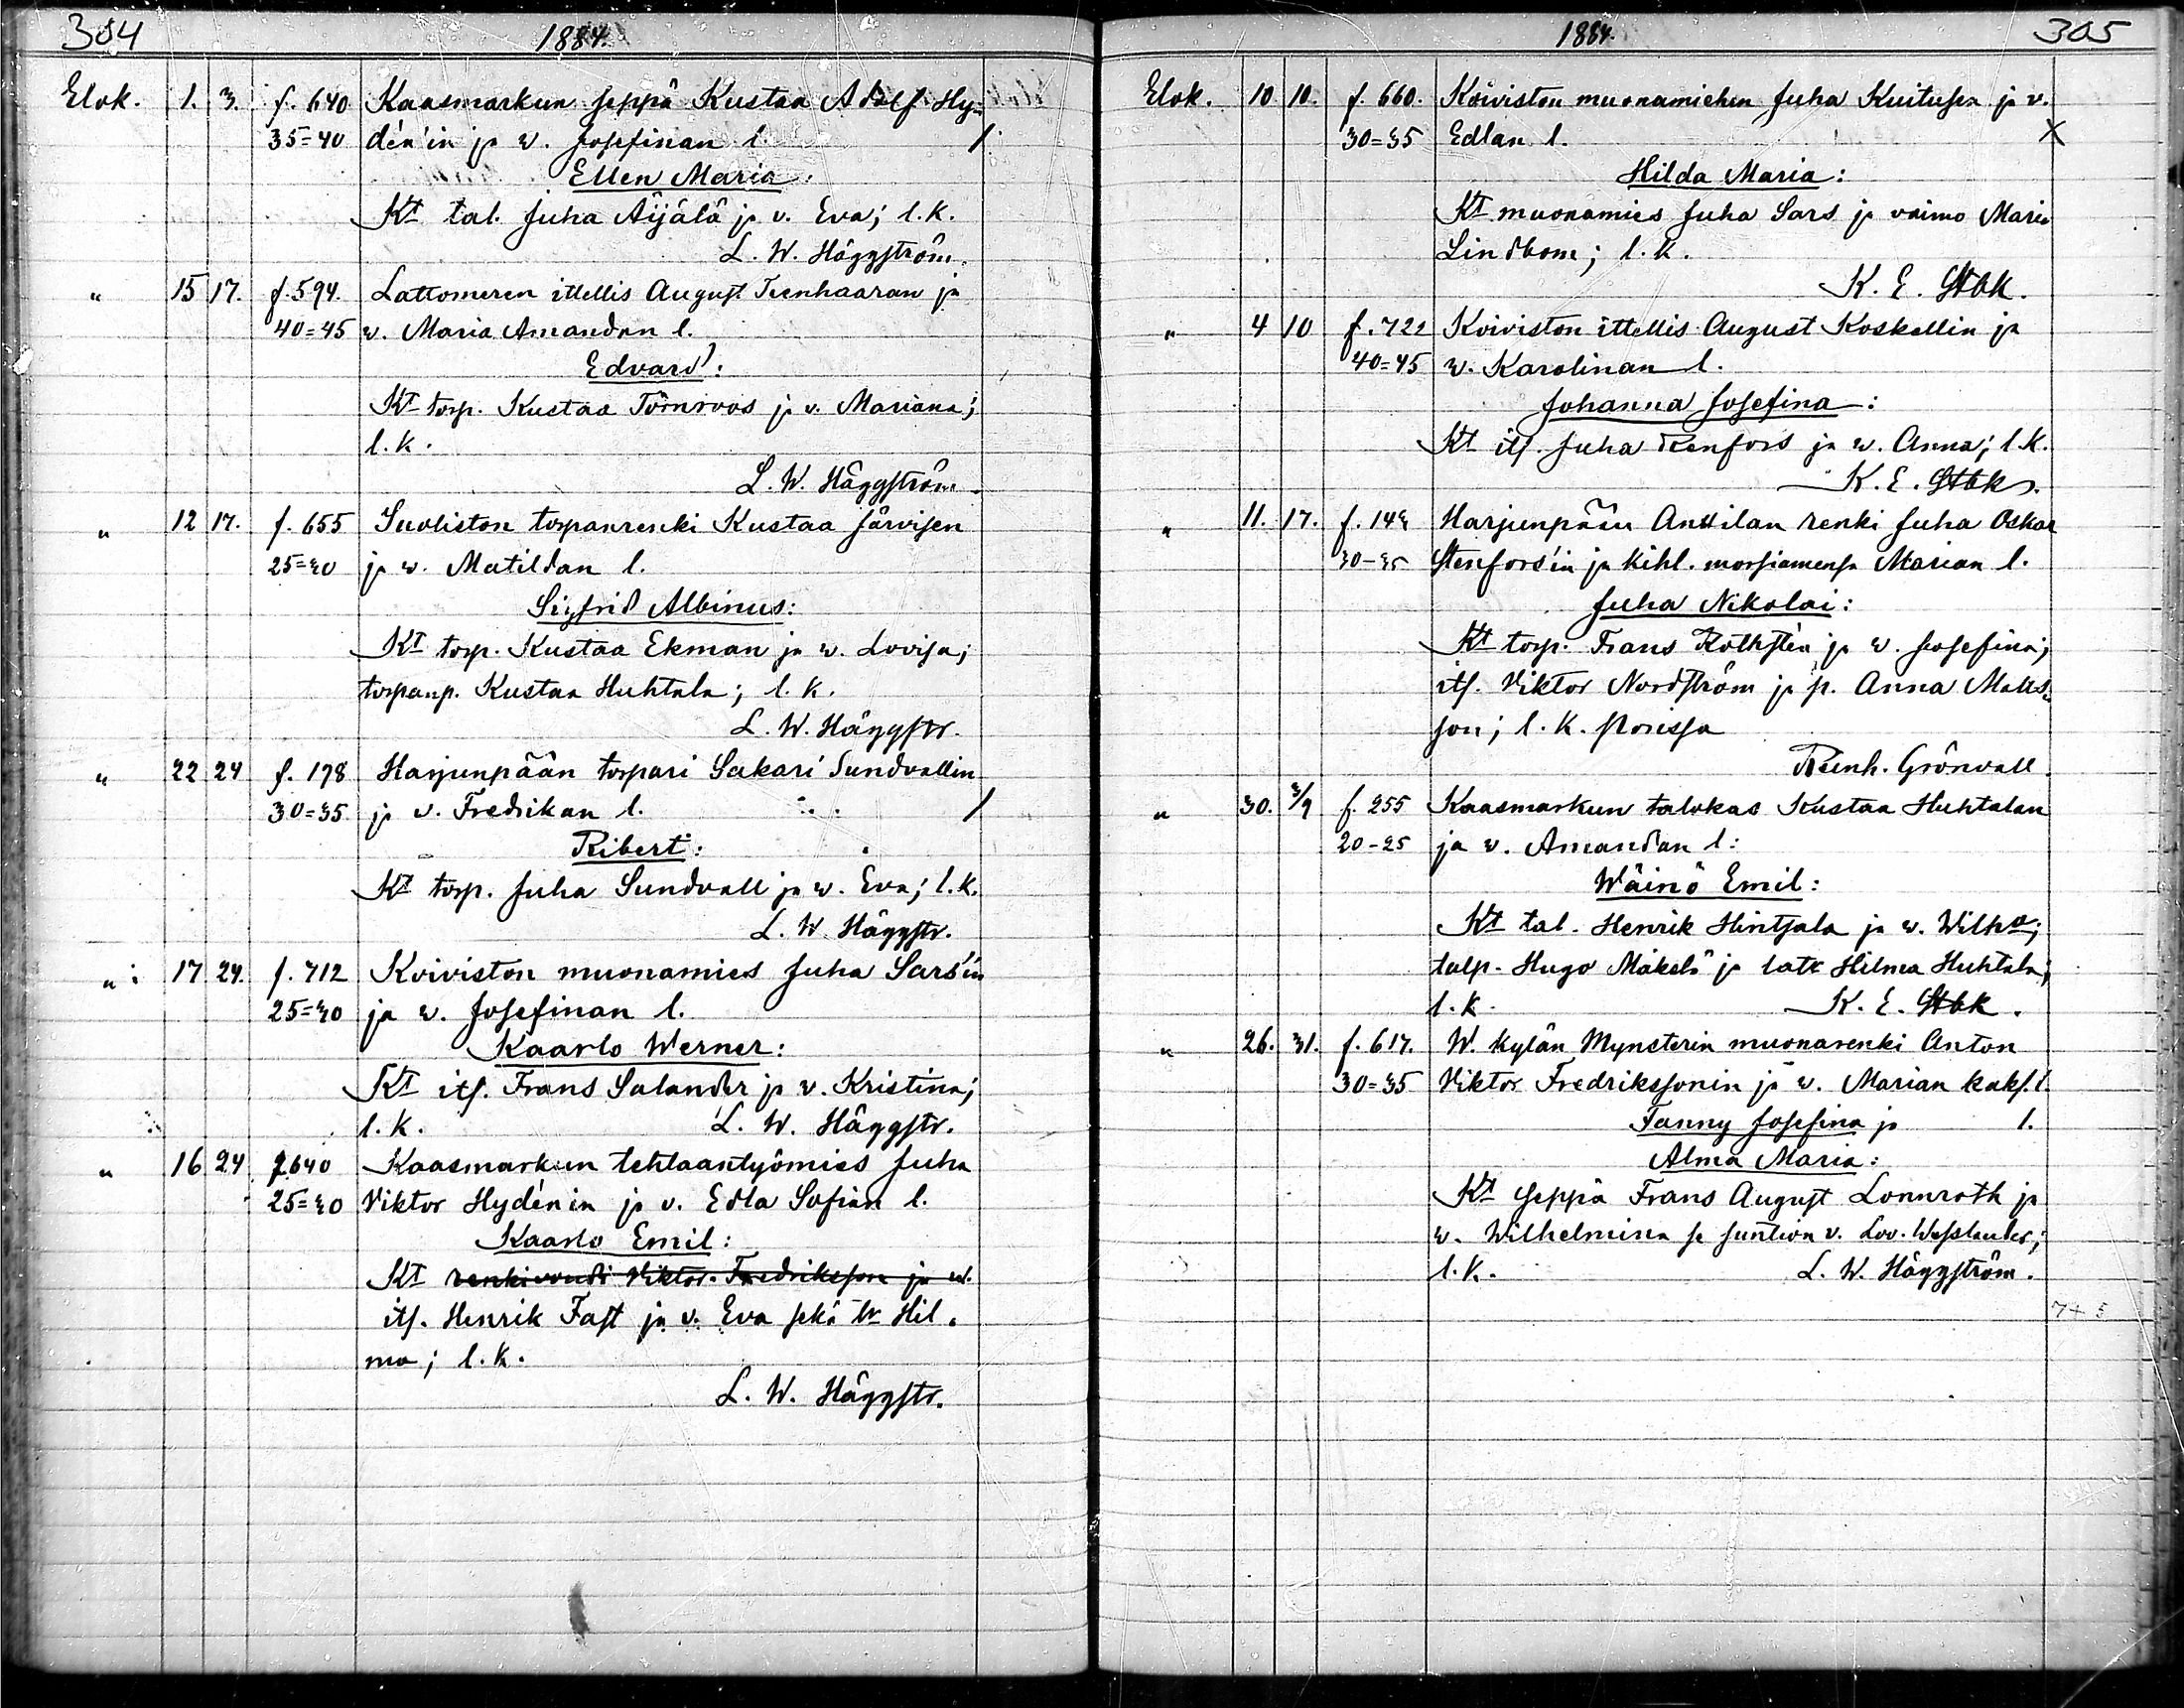 304
1884.
Elok. 1. 3. f. 640 Kaasmarkun seppä Kustaa Adolf Hy-
35=40 dén'in ja w. Josefinan l. /
Ellen Maria:
Kt tal. Juha Äijälä ja v. Eva; l.k.
L. W. Häggström.
" 15 17. f. 594. Lattomeren ittellis August Teenhaaran ja
40=45 w. Maria Amandan l.
Edvard:
Kt torp. Kustaa Törnroos ja v. Mariana;
l.k.
L. W. Häggström.
" 12 17. f. 655 Suoliston torpanrenki Kustaa Järvisen
25=30 ja w. Matildan l.
Sigfrid Albinus:
Kt torp. Kustaa Ekman ja w. Lovisa;
torpanp. Kustaa Huhtala; l.k.
L. W. Häggstr.
" 22 24 f. 178 Harjunpään torpari Sakari Sundvallin
30=35 ja v. Fredrikan l. /
Ribert:
Kt torp. Juha Sundvall ja w. Eva; l.k.
L. W. Häggstr.
" 17 24. f. 712 Koiviston muonamies Juha Sars'in
25=30 ja w. Josefinan l.
Kaarlo Werner:
Kt its. Frans Salander ja v. Kristina;
l.k. L. W. Häggstr.
" 16 24 f. 640 Kaasmarkun tehtaantyömies Juha
25=30 Viktor Hydénin ja v. Edla Sofian l.
Kaarlo Emil:
Kt renkivouti Viktor Fredriksson ja w.
its. Henrik Fast ja v. Eva sekä tr Hil-
ma; l.k.
L. W. Häggstr.
1884.
305
Elok. 10 10. f. 660. Koiviston muonamiehen Juha Kuitusen ja v.
30=35 Edlan l. X
Hilda Maria:
Kt muonamies Juha Sars ja vaimo Maria
Lindbom; l.k.
K. E. Stbk.
" 4 10 f. 722 Koiviston ittellis August Koskellin ja
40=45 w. Karolinan l.
Johanna Josefina:
Kt its. Juha Renfors ja w. Anna; l.k.
K. E. Stbk.
" 11. 17. f. 143 Harjunpään Anttilan renki Juha Oskar
30-35 Stenfors'in ja kihl. morsiamensa Marian l.
Juha Nikolai:
Kt torp. Frans Rothstén ja w. Josefina;
its. Viktor Nordström ja p. Anna Matts-
son; l.k. Porissa
Reinh. Grönvall.
" 30. 3/9 f. 255 Kaasmarkun talokas Kustaa Huhtalan
20-25 ja v. Amandan l:
Wäinö Emil:
Kt tal. Henrik Hintsala ja w. Wilh:a;
talp. Hugo Mäkelä ja tatr Hilma Huhtala;
l.k. K. E. Stbk.
" 26. 31. f. 617. W. kylän Mynsterin muonarenki Anton
30=35 Viktor Fredrikssonin ja w. Marian kaks. l.
Fanny Josefina ja 1.
Alma Maria:
Kt seppä Frans August Lönnroth ja
w. Wilhelmina ja suntion v. Lov.
l.k. L. W. Häggström.
7+5